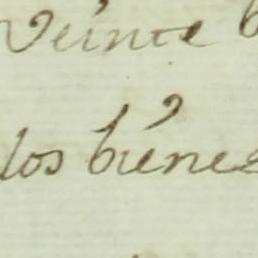 Veinte
los bienes